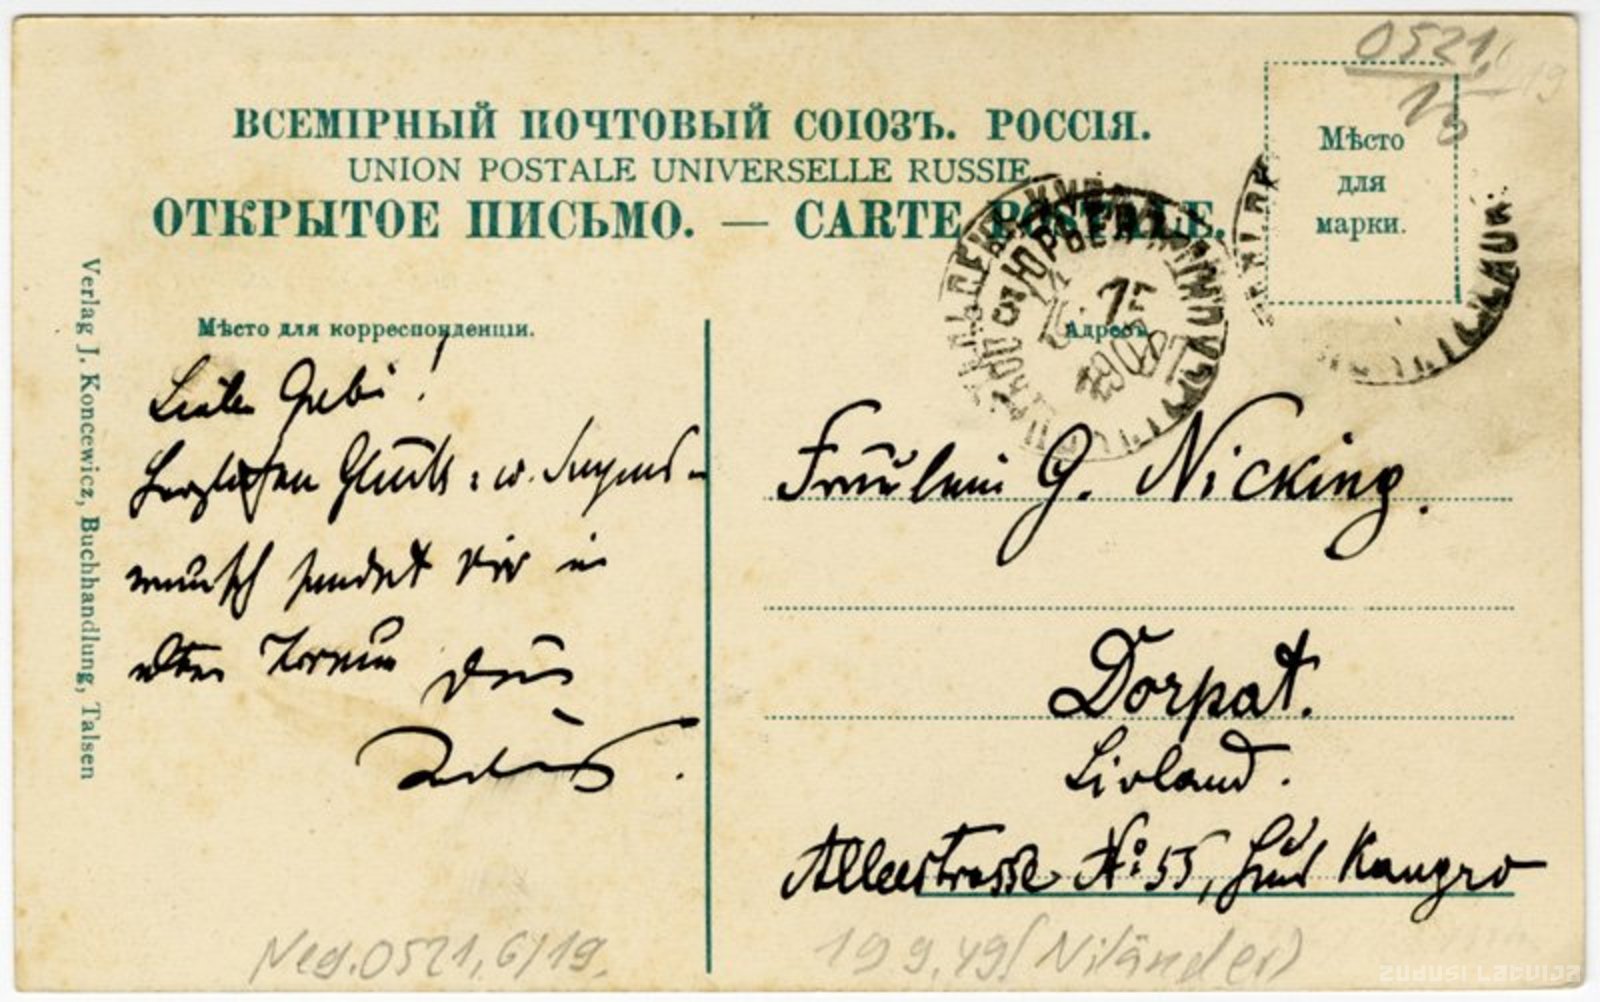 0521,6/19
15
ВСЕМІРНЫЙ ПОЧТОВЫЙ СОЮЗЪ. РОССІЯ.
UNION POSTALE UNIVERSELLE RUSSIE.
ОТКРЫТОЕ ПИСЬМО. — CARTE POSTALE.
Мѣсто
для
марки.
ЮРЬЕВЪ
Verlag J. Koncewicz, Buchhandlung, Talsen
Мѣсто для корреспонденціи.
Адресъ.
Herzlichen Glück- u. Segens-
wunsch sendet Dir in
alter Dein
Fräulein G. Nicking.
Dorpat.
Livland.
Alleestrasse No 55, Haus Kangro
Neg. 0521,6/19.
199.49 (Niländer)
ZUDUSI LATVIJA